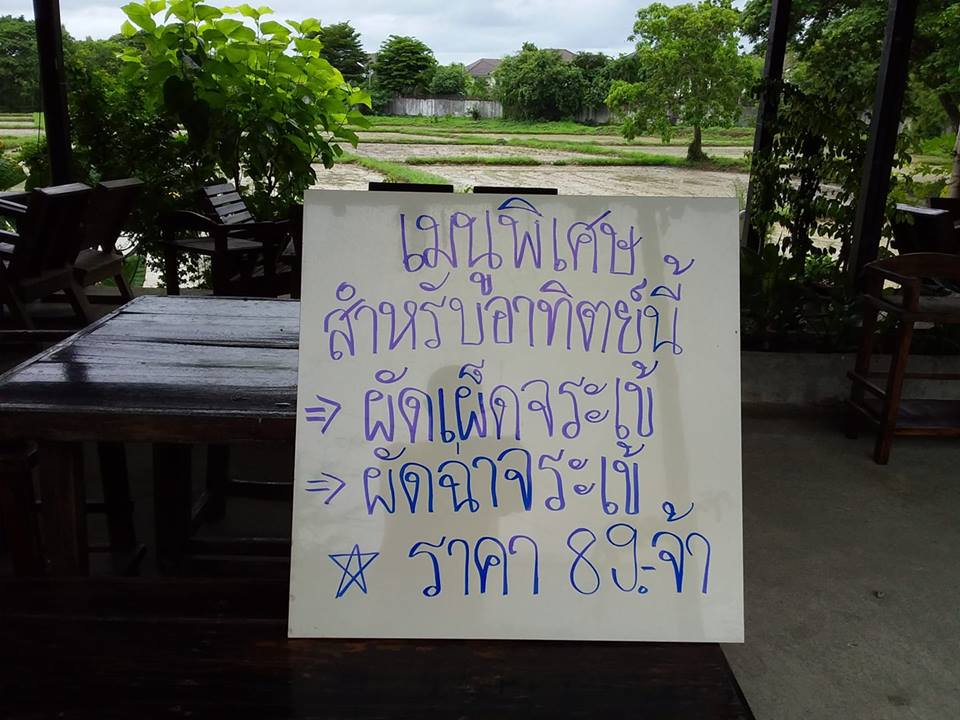 เมนูพิเศษ
สำหรับอาทิตย์นี้
⇒ ผัดเผ็ดจระเข้
⇒ ผัดฉ่าจระเข้
☆ ราคา 89.-จ้า